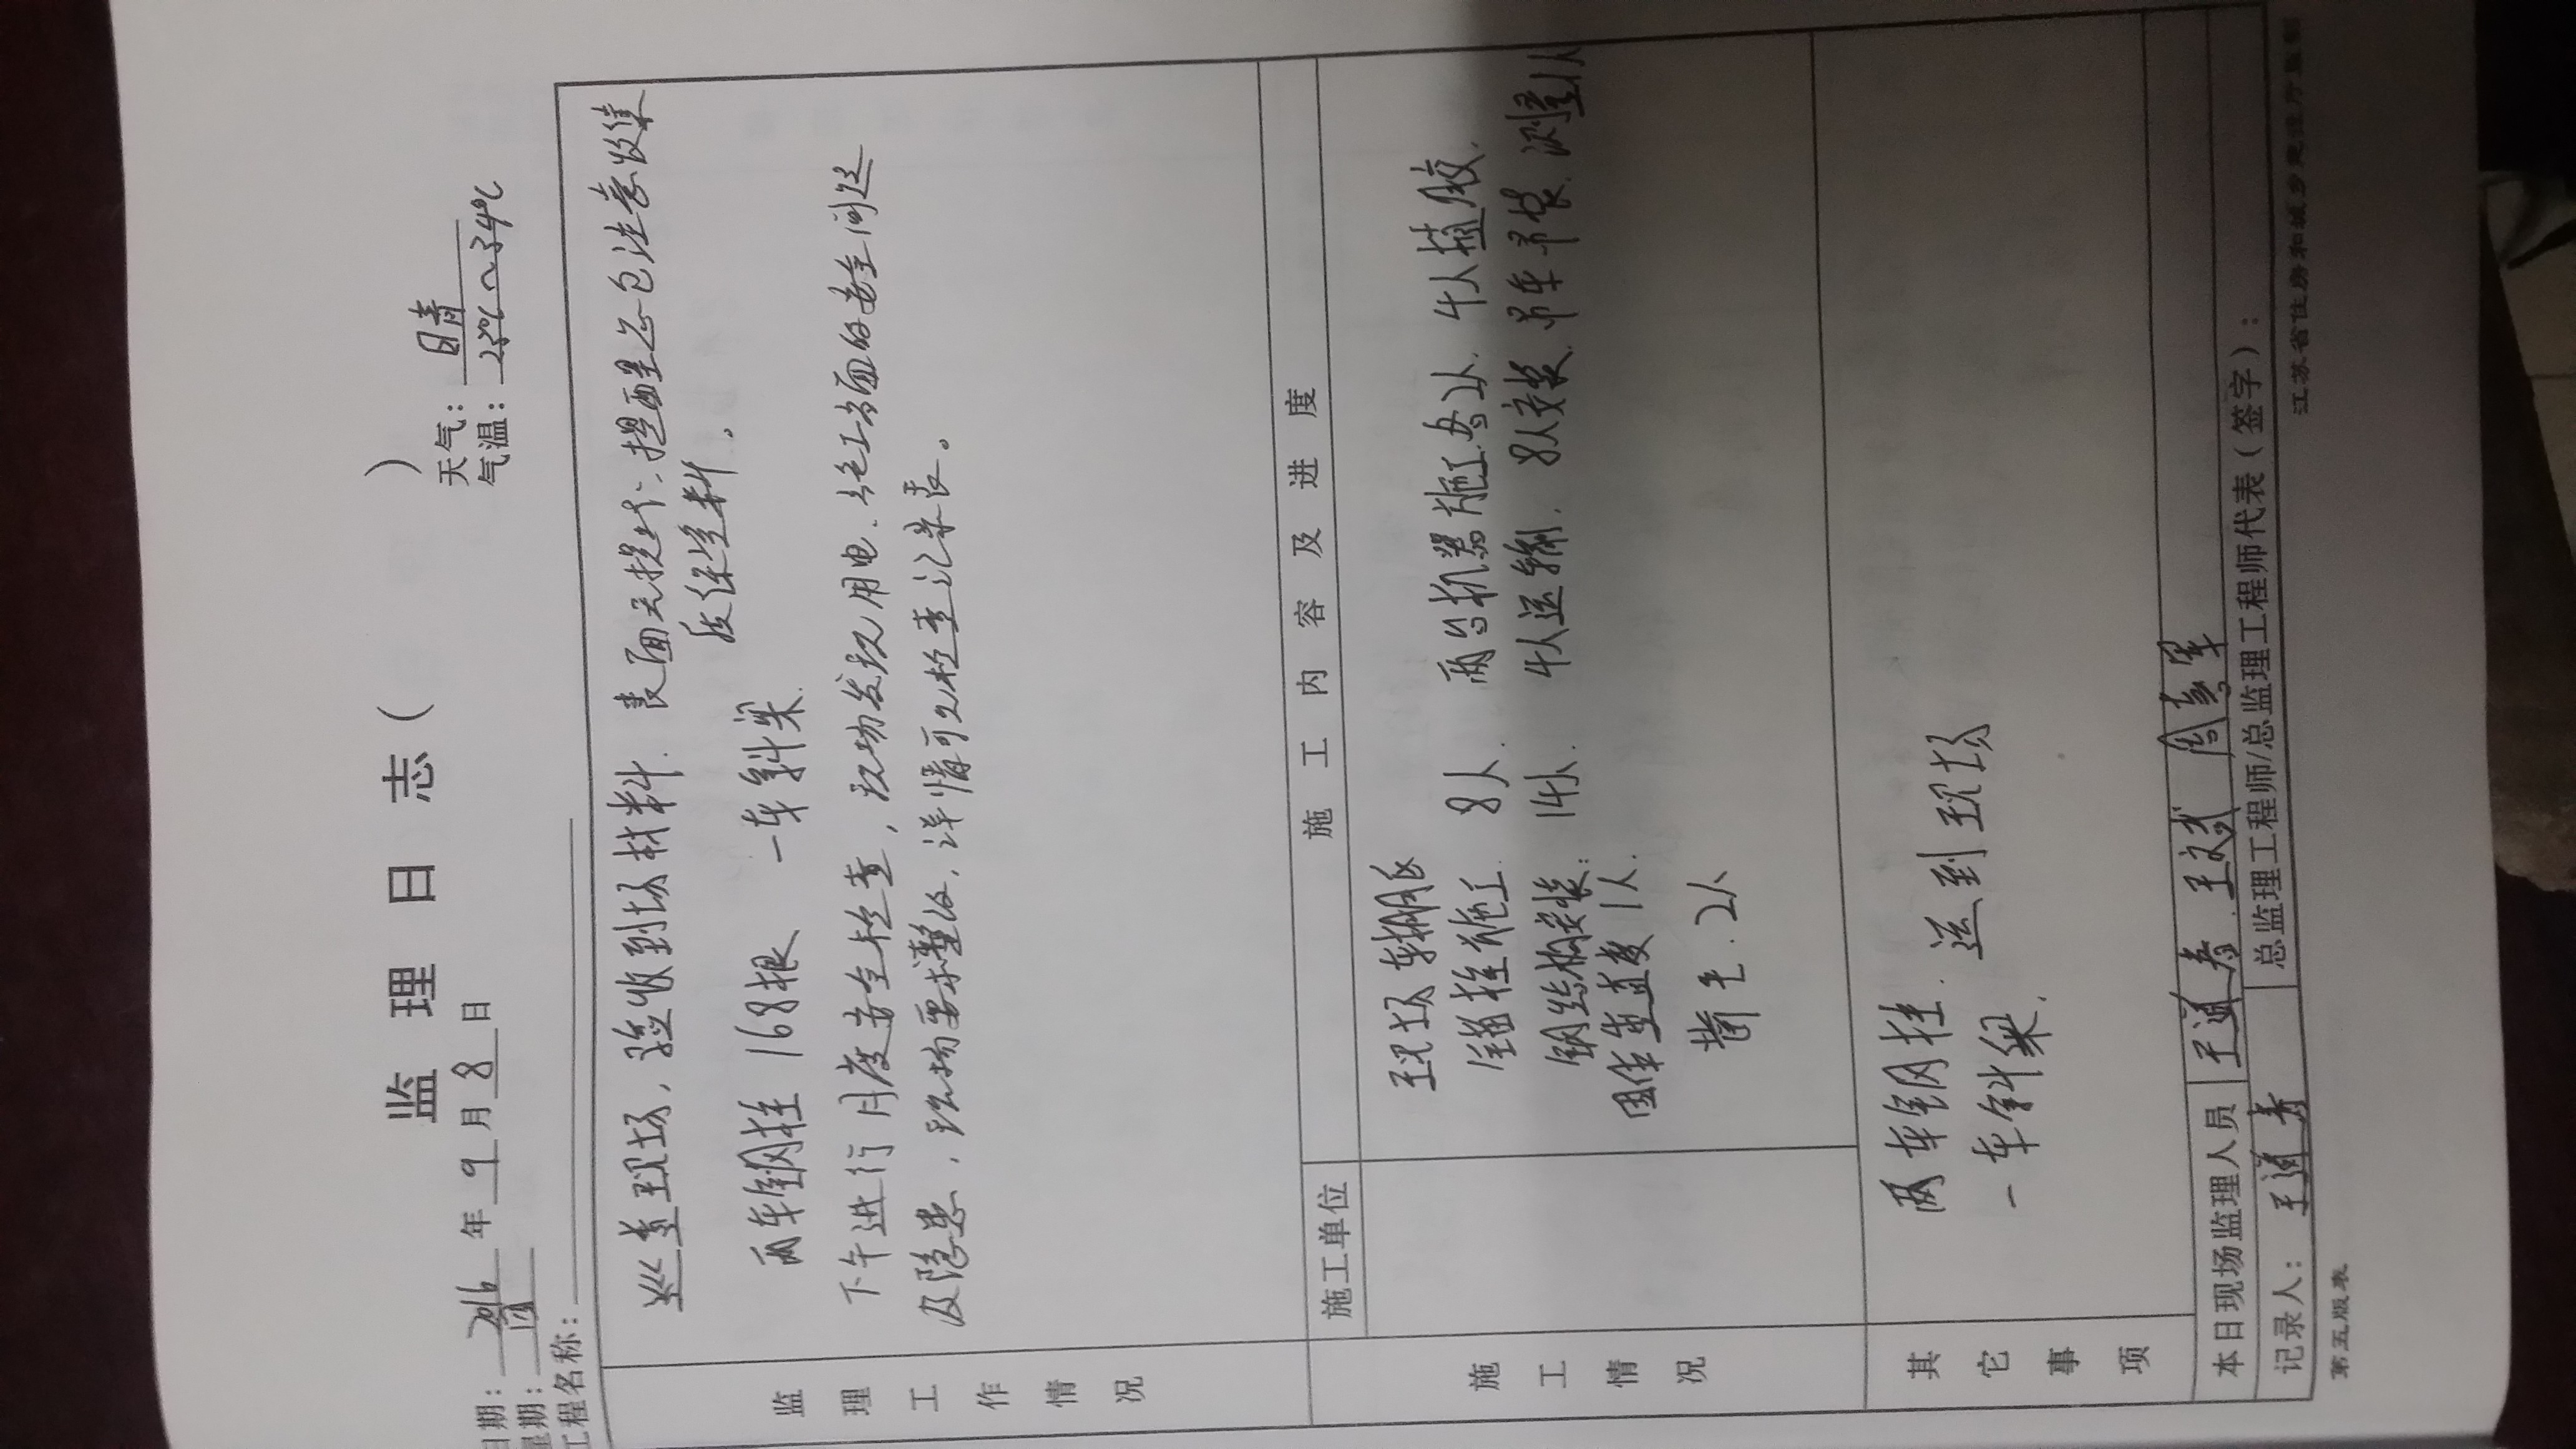 监理日志（ ）
日期：2016年9月8日 天气：晴
星期：四 气温：25℃～34℃
工程名称：
监理工作情况
巡查现场，验收到场材料．表面无损伤．提醒总包注意收集
及保管资料。
两车钢柱 168根 一车斜梁．
下午进行月度安全检查，现场发现用电．作面的安全问题
及隐患，现场要求整改，详情可见检查记录表。
施工情况
施工单位 施工内容及进度
现场
锚栓施工 8人． 两台机器施工各2人．4人植胶．
钢结构安装：14人． 4人运输．8人安装．吊车吊装．测量1人
垂直度1人．
2人
其它事项
两车钢柱．运到现场
一车斜梁．
本日现场监理人员
记录人： 总监理工程师/总监理工程师代表（签字）：
第五版表 江苏省住房和城乡建设厅监制